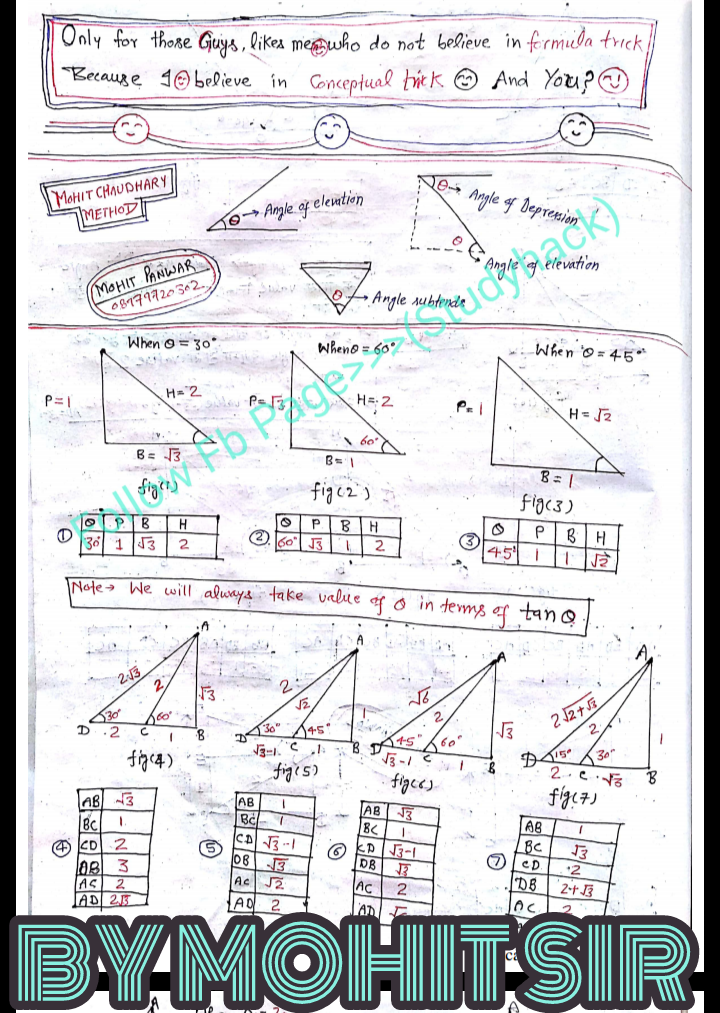 Only for those Guys, likes me who do not believe in formula trick
Because I believe in Conceptual trick And You?
MOHIT CHAUDHARY
METHOD
θ → Angle of elevation
θ → Angle of Depression
θ
Angle of elevation
MOHIT PANWAR
08979720302
θ → Angle subtends
Follow Fb Page>>>(Studyhack)
When θ = 30°
When θ = 60°
When θ = 45°
P = 1
H = 2
B = √3
fig(1)
P = √3
H = 2
60°
B = 1
fig(2)
P = 1
H = √2
B = 1
fig(3)
① θ P B H
30° 1 √3 2
② θ P B H
60° √3 1 2
③ θ P B H
45° 1 1 √2
Note → We will always take value of θ in terms of tan θ
A
2√3 2 √3
30° 60°
D 2 C 1 B
fig(4)
A
2 √2 1
30° 45°
D √3-1 C 1 B
fig(5)
A
√6 2 √3
45° 60°
D √3-1 C 1 B
fig(6)
A
2√2+√3 2 1
15° 30°
D 2 C √3 B
fig(7)
④
AB √3
BC 1
CD 2
DB 3
AC 2
AD 2√3
⑤
AB 1
BC 1
CD √3-1
DB √3
AC √2
AD 2
⑥
AB √3
BC 1
CD √3-1
DB √3
AC 2
AD
⑦
AB 1
BC √3
CD 2
DB 2+√3
AC 2
BY MOHIT SIR